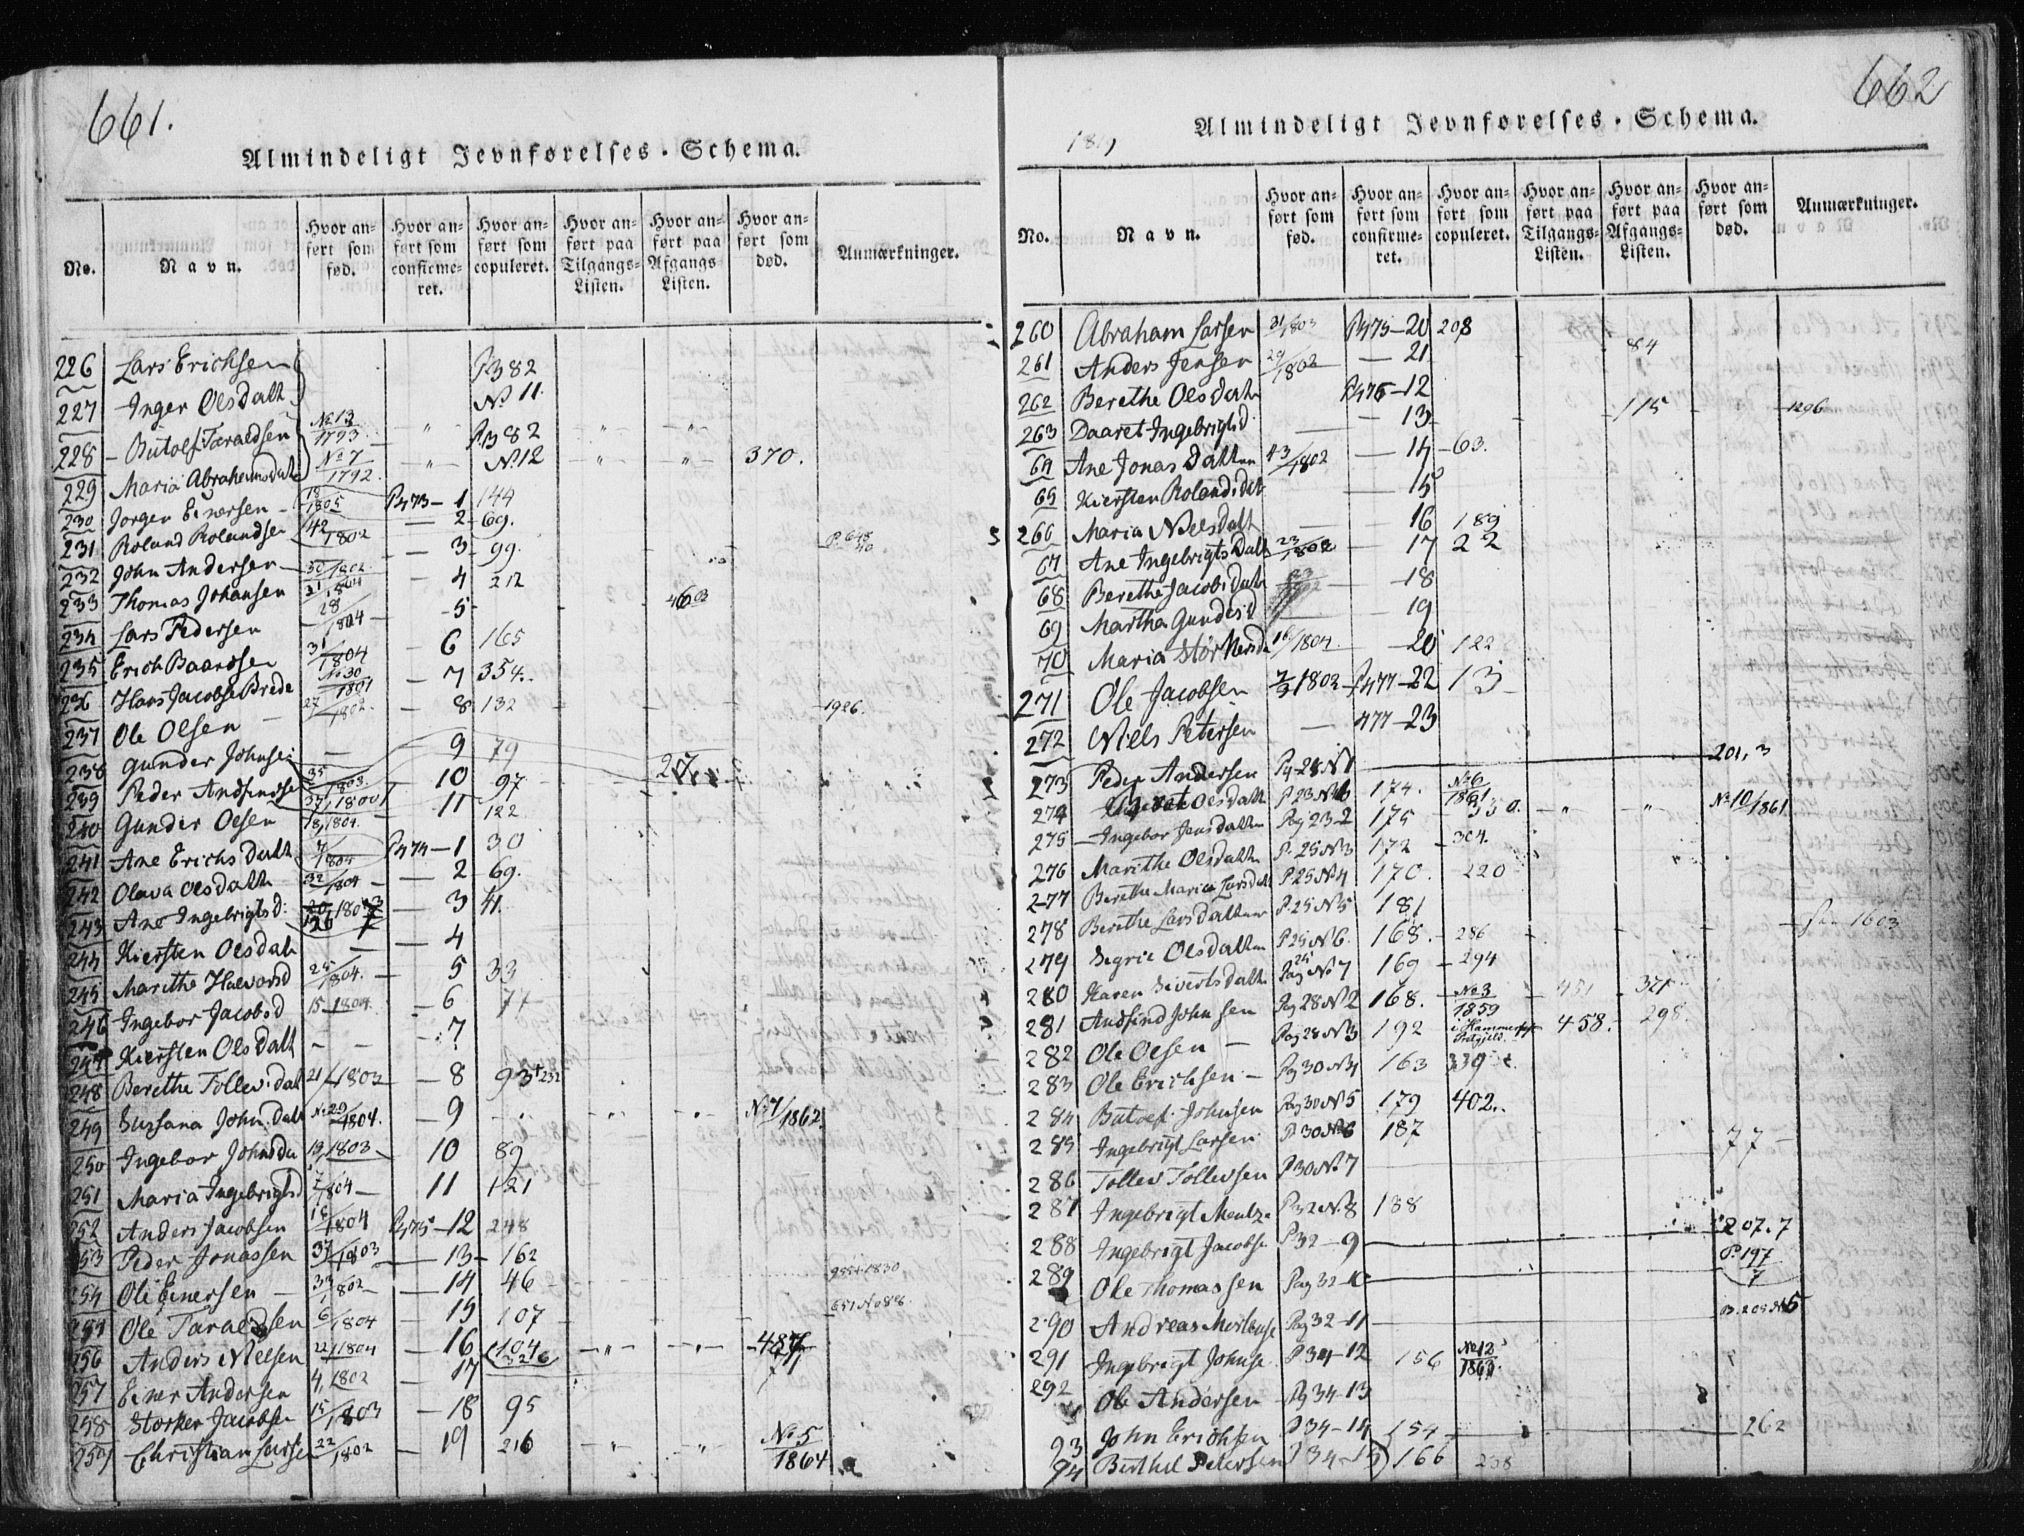 661.
Almindeligt Jevnførelses-Schema.
No. | Navn. | Hvor anført som fød. | Hvor anført som confirmeret. | Hvor anført som copuleret. | Hvor anført paa Tilgangs-Listen. | Hvor anført paa Afgangs-Listen. | Hvor anført som død. | Anmærkninger.
226 Lars Erichsen P 382
227 Inger Olsdatt No 11.
228 Butolf Taraldsen No 13 1793 P 382
229 Maria Abrahamsdatt No 7 1792. No 12 370.
230 Jorgen Einersen 18/1805 P 473 - 1 144
231 Roland Rolandsen 42/1802 - 2 - 69.
232 John Andersen 30/1802 - 3 - 99.
233 Thomas Johansen 21/1804 - 4 212
234 Lars Pedersen 28/1804 - 5 -
235 Erich Baardsen 31/1804 - 6 165
236 Hans Jacobse Brede No 30 1801 - 7 354.
237 Ole Olsen 27/1802. - 8 132 1926.
238 Gunder Johnse - 9 79
239 Peder Andfindse 35/1803. - 10 97
240 Gunder Olsen 18/1804. - 11 122
241 Ane Erichsdatt 7/1804 P 474 - 1 30
242 Olava Olsdatt 32/1804 - 2 69.
243 Ane Ingebrigtsd. - 3 41.
244 Kiersten Olsdatt - 4
245 Marithe Halvorsd 25/1804. - 5 33
246 Ingebor Jacobsd 15 1804. - 6 77
247 Kiersten Olsdatt - - 7
248 Berethe Tollevsdatt 21/1803 - 8 93 232
249 Sussana Johnsdatt No 29 1804. - 9 No 1/1862
250 Ingebor Johnsda 19, 1803 - 10 89
251 Maria Ingebrigtsd 1804 - 11 121
252 Anders Jacobsen 18/1804 P 475 - 12 248
253 Peder Jonassen 37/1803 - 13 - 162
254 Ole Einersen - 33/1802 - 14 46
Ole Taraldsen 6/1804 - 15 107
256 Anders Nielsen 22/1804 - 16 104
257 Einer Andersen 4, 1802 - 17
258 Storker Jacobse 15/1803 - 18 95
259 Christian Larse 22/1802 - 19 216 No 5 1864
662
Almindeligt Jevnførelses-Schema.
No. | Navn. | Hvor anført som fød. | Hvor anført som confirmeret. | Hvor anført som copuleret. | Hvor anført paa Tilgangs-Listen. | Hvor anført paa Afgangs-Listen. | Hvor anført som død. | Anmærkninger.
260 Abraham Larsen 31/1803 P 475 - 20 208
261 Anders Jensen 29/1802 - 21 84
262 Berethe Olsdatt P 476 - 12
263 Daaret Ingebrigtsd. - 13 115 1296
64 Ane Jonasdatter 43/1802 - 14 - 63.
65 Kiersten Rolandsdat - 15
266 Maria Nielsdatt - 16 189
67 Ane Ingebrigtsdatt 23/1802 - 17 22
68 Berethe Jacobsdatt - 18
69 Martha Gundersd - 19
70 Maria Størkersda 16/1804. - 20 122
271 Ole Jacobsen 1802 - P 477 - 22 13
272 Niels Petersen - 477 - 23
273 Peder Andersen Pg 28 N 1 201, 3
274 Olsdatt P. 23 No 6 174. No 6 1861
275 Ingebor Jensdatter Pag 23 - 2 175 - 350. No 10/1861
276 Marithe Olsdatter P. 25 N 3 172 - 304.
277 Berethe Maria Larsdatt P. 25 N 4 170. 220
278 Berethe Larsdatter P. 25 N 5 181
279 Segrie Olsdatter P 25 N 6. 168. - 286 1603
280 Karen Sivertsdatt Pag 25 No 7 169 - 294
281 Andfind Johnsen Pag 28 N 2 168. No 3 1859 451 321
282 Ole Olsen - Pag 28 N 3 192 i Hammerf. Prstgjeld. 458. 298.
283 Ole Erichsen - Pg 30 N 4 163 339
284 Butolf Johnsen Pag 30 N 5 179 402.
285 Ingebrigt Larsen P. 30 No 6 187
286 Tollev Tollevsen P 30 No 7 77
287 Ingebrigt Mentze P. 32 N. 8 188
288 Ingebrigt Jacobse P 32 - 9 207. 7
289 Ole Thomassen Pag 32 - 10 P 197 7
290 Andreas Pag 32 - 11
291 Ingebrigt Johnse P 34 - 12 156 No 12
292 Ole Andersen Pg 34 - 13
93 John Erichsen P 34 - 14 154 262
94 Berthel Petersen P 34 - 15 166 238